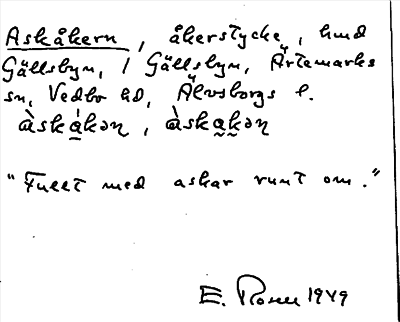 Askåkern, åkerstycke, hmd
Gällsbyn, 1 Gällsbyn, Ärtemarks
sn, Vedbo hd, Älvsborgs l.
àskå̀kən, àskakən
"Fullt med askar runt om."
E. 1949